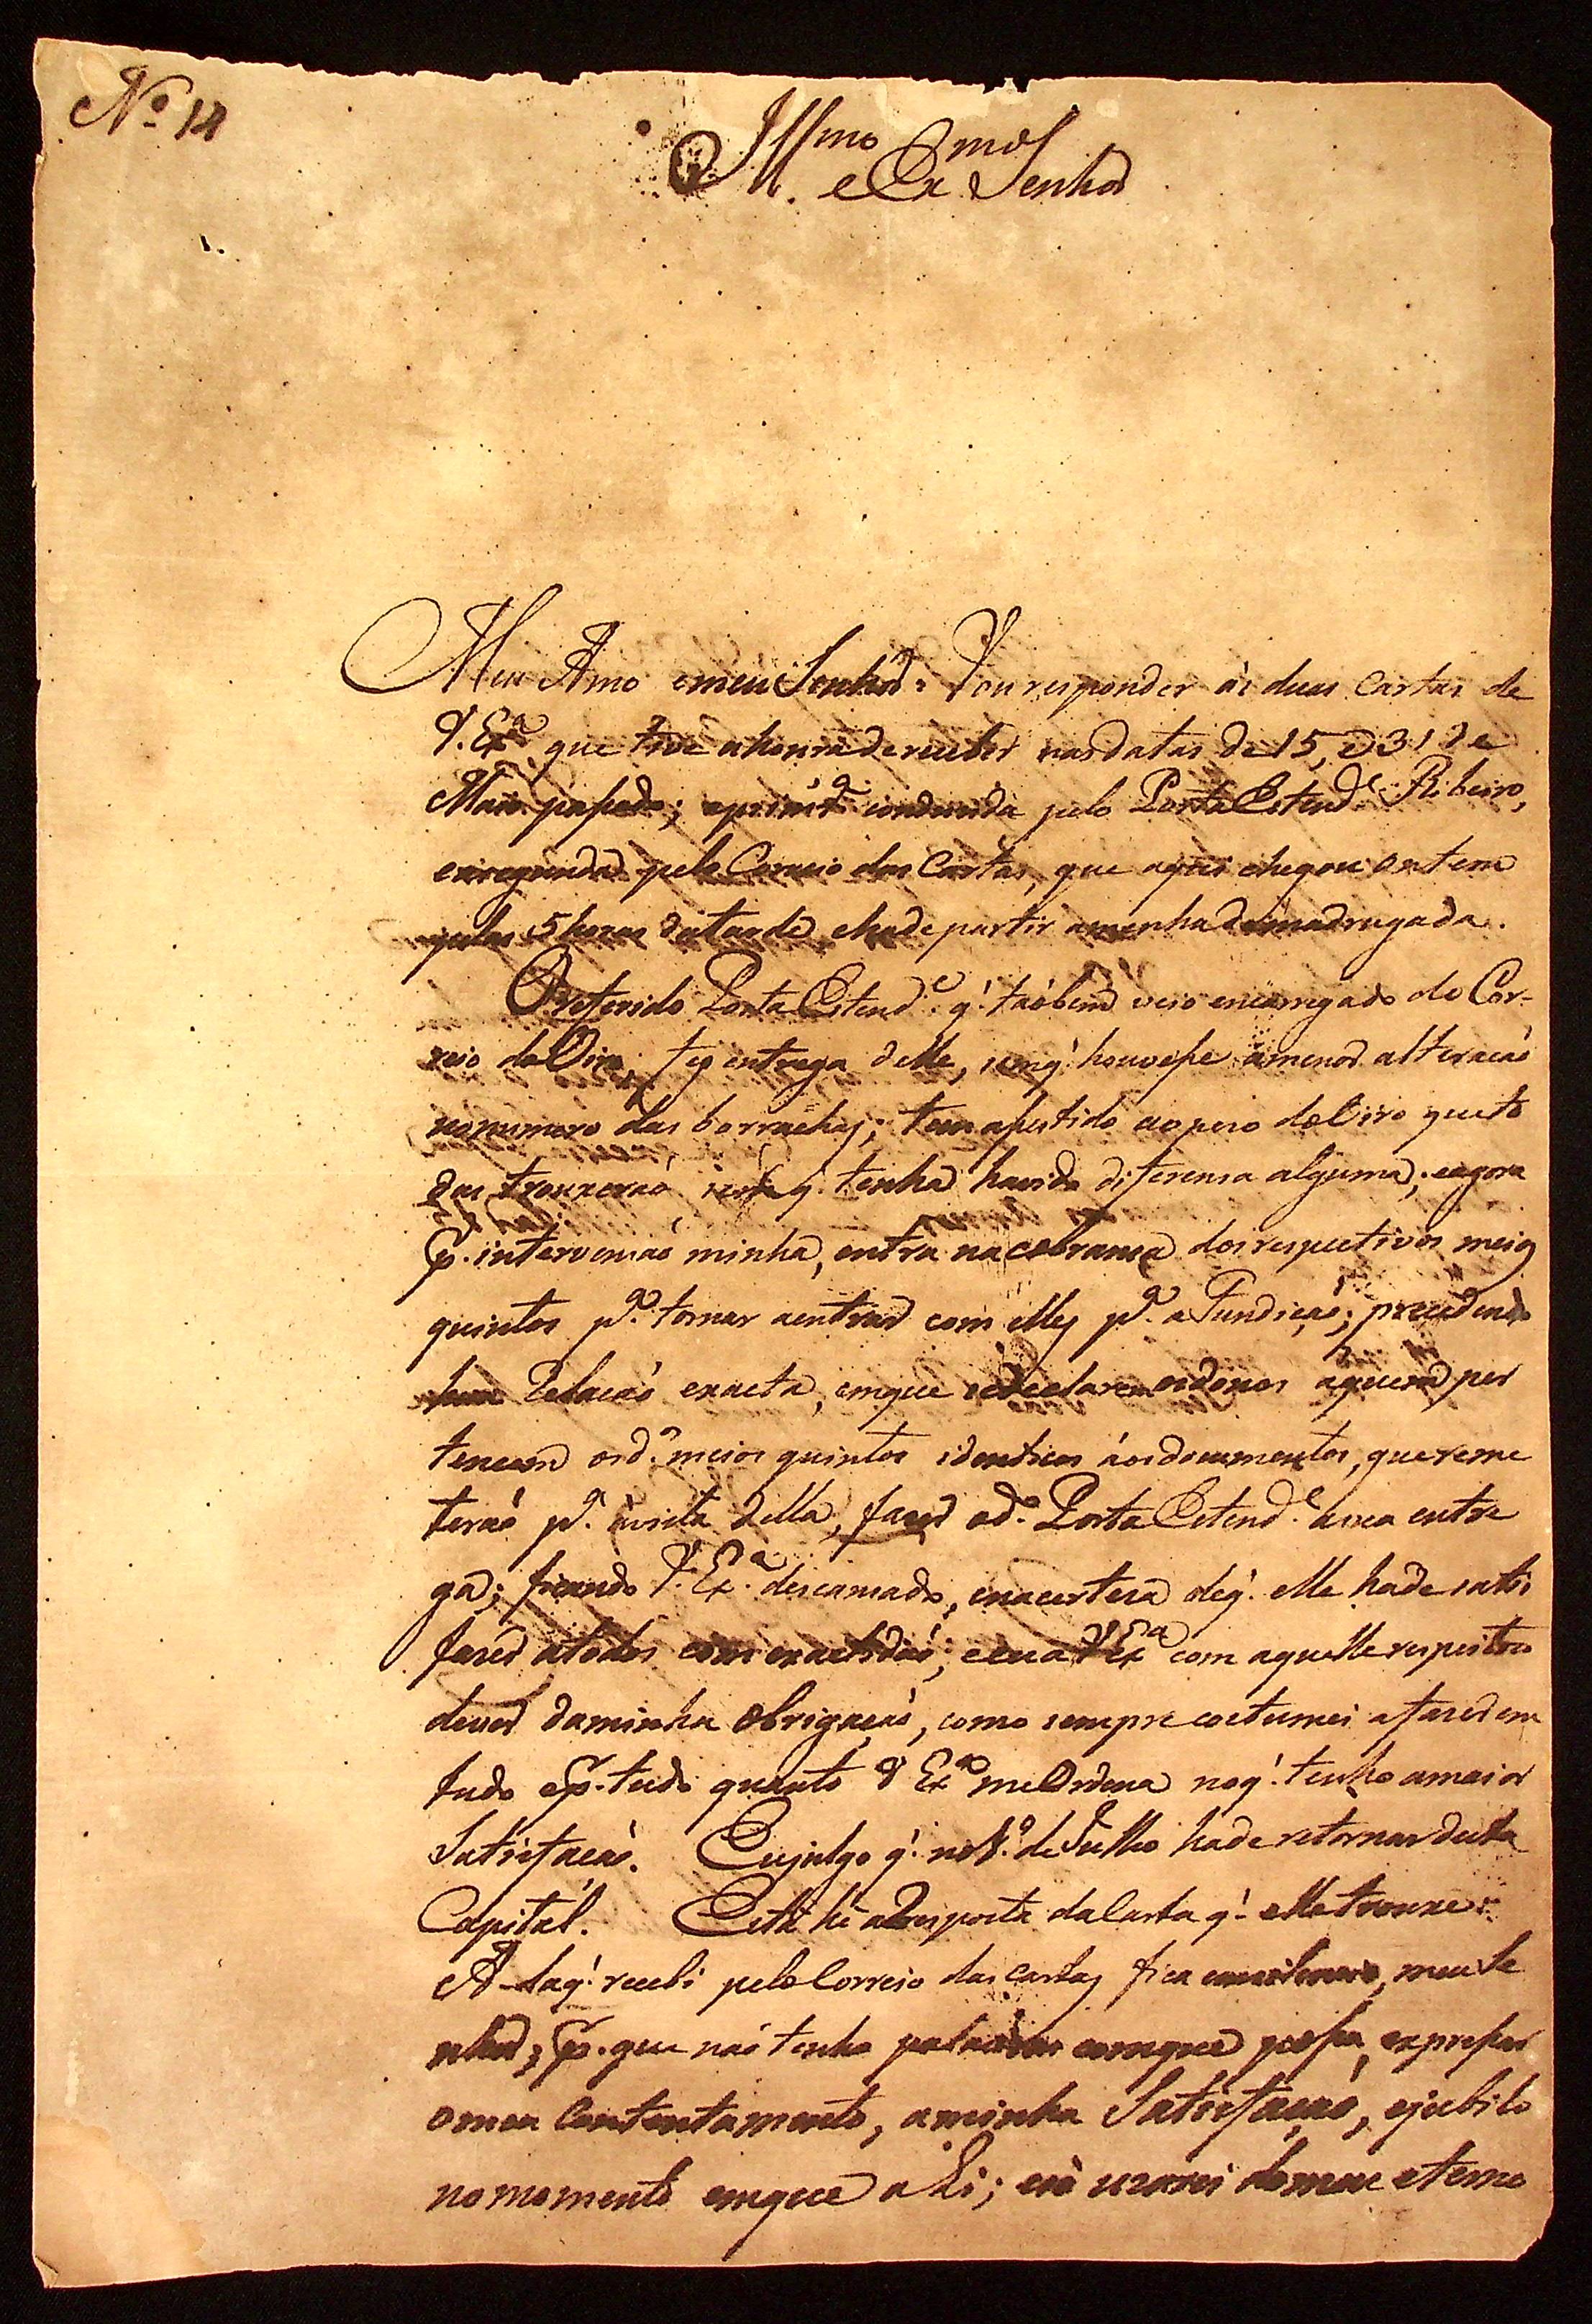 Nº 14
Illmo e Exmo Senhor
Meu Amo emeu Senhor. Vou responder ás duas Cartas de
V. Exª que tive ahonra dereceber nas datas de 15, e 31 de
Maio passado; aprimrª condusida pelo Porta Estende Ribeiro,
easegunda pelo Correio das Cartas, que aqui chegou ontem
pelas 5 horas datarde, ehade partir amenhã demadrugada.
Oreferido Porta Estende q' taõbem veio encarregado do Cor-
reio do Oiro, fez entrega delle, semq' houvesse amenor alteracaõ
nonumero das borrachas; tem assestido aopeso doOiro que to
das trouxeraõ sem q' tenha havido diferensa alguma; eagora
p. intervensaõ minha, entra nacobransa dosrespectivos meios
quintos pª tornar aentrar com elles pª aFundiçaõ; precedendo
huma Relacaõ exacta, emque sedeclarem osdonos aquem per
tencem osdos meios quintos identicos áosdocumentos, quereme
teraõ pª ávista della, faser odo Porta Estende asua entre
ga; ficando V. Exª descansado, enacertesa deq' elle hade satis
faser atodos com exactidaõ; eeu a V Exª com aquelle respeitozo
dever daminha obrigacaõ, como sempre costumei afaser em
tudo ep. tudo quanto V Exª meOrdena noq' tenho amaior
Satisfacaõ. Eujulgo q' no 1º deJulho hade retornar desta
Capitál. Esta hé aResposta daCarta q' elle trouxe.
A daq' recebi pelo Correio das cartas fica meu Se
nhor; p. que naõ tenho palavras comque possa, expressar
omeu Contentamento, aminha Satisfacaõ, ejubilo
nomomento emque a Li; domeu eterno